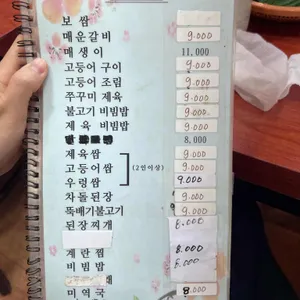 보 쌈
매운갈비 9.000
매생이 11.000
고등어 구이 9.000
고등어 조림 9.000
쭈꾸미 제육 9.000
불고기 비빔밥 9.000
제 육 비빔밥 9.000
8.000
제육쌈 9.000
고등어쌈 (2인이상) 9.000
우렁쌈 9.000
차돌된장 9.000
뚝배기불고기 9.000
된장찌개 8.000
계란찜 8.000
비빔밥 8.000
미역국 8.000